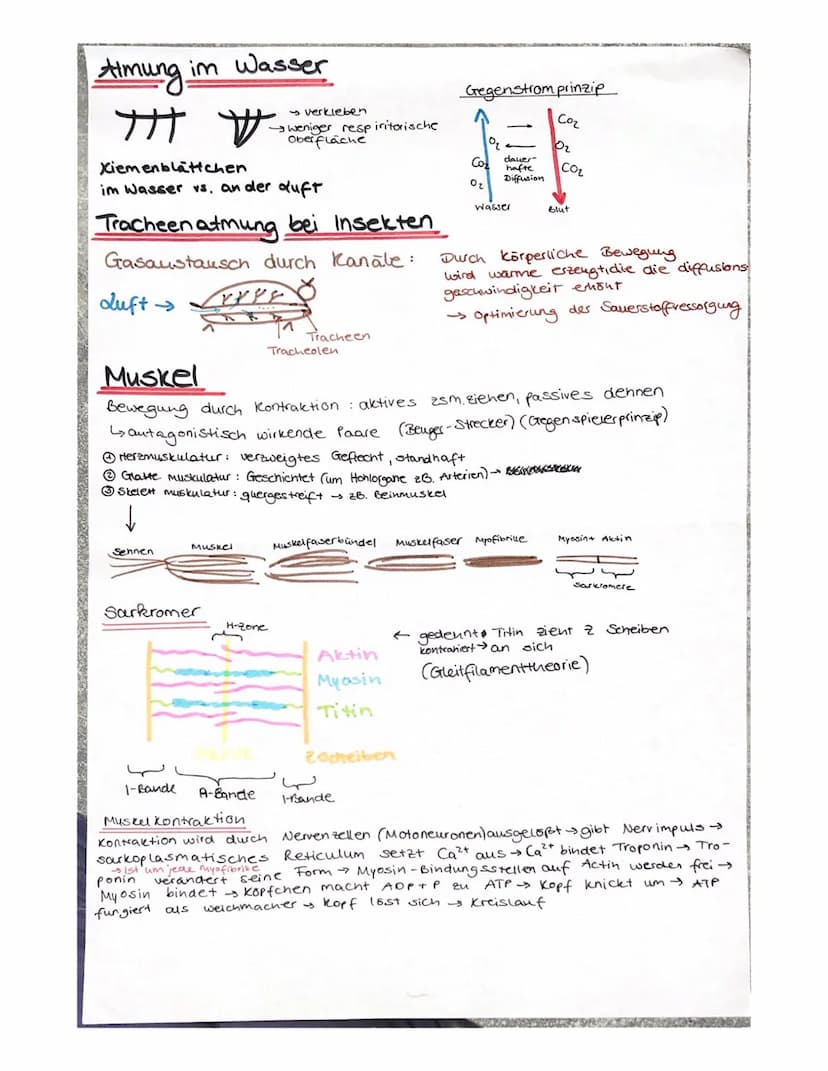 Atmung im Wasser
→ verkleben
→ weniger respiritorische
Oberfläche
Kiemenblättchen
im Wasser vs. an der Luft
Gegenstromprinzip
CO2
O2
O2
CO2
dauer-
hafte
Diffusion
CO2
O2
Wasser
Blut
Tracheenatmung bei Insekten
Gasaustausch durch Kanäle:
Luft →
Tracheen
Tracheolen
Durch körperliche Bewegung
wird wärme erzeugt, die die diffusions
geschwindigkeit erhöht
→ Optimierung der Sauerstoffversorgung
Muskel
Bewegung durch Kontraktion: aktives zsm.ziehen, passives dehnen
↳ antagonistisch wirkende Paare (Beuger-Strecker) (Gegenspielerprinzip)
① Herzmuskulatur: verzweigtes Geflecht, standhaft
② Glatte muskulatur: Geschichtet (um Hohlorgane zB. Arterien) →
③ Skelett muskulatur: quergestreift → zB. Beinmuskel
Sehnen Muskel Muskelfaserbündel Muskelfaser Myofibrille Myosin+ Aktin
Sarkromere
Sarkromer
H-Zone
Aktin
Myosin
Titin
Z Scheiben
← gedehnt Titin zieht Z Scheiben
kontrahiert → an sich
(Gleitfilamenttheorie)
I-Bande A-Bande I-Bande
Muskelkontraktion
Kontraktion wird durch Nervenzellen (Motoneuronen) ausgelößt → gibt Nervimpuls →
sarkoplasmatisches Reticulum setzt Ca2+ aus → Ca2+ bindet Troponin → Tro-
→ ist um jede Myofibrille
ponin verändert seine Form → Myosin-Bindungsstellen auf Actin werden frei →
Myosin bindet → Köpfchen macht ADP+P zu ATP → Kopf knickt um → ATP
fungiert als weichmacher → Kopf löst sich → Kreislauf